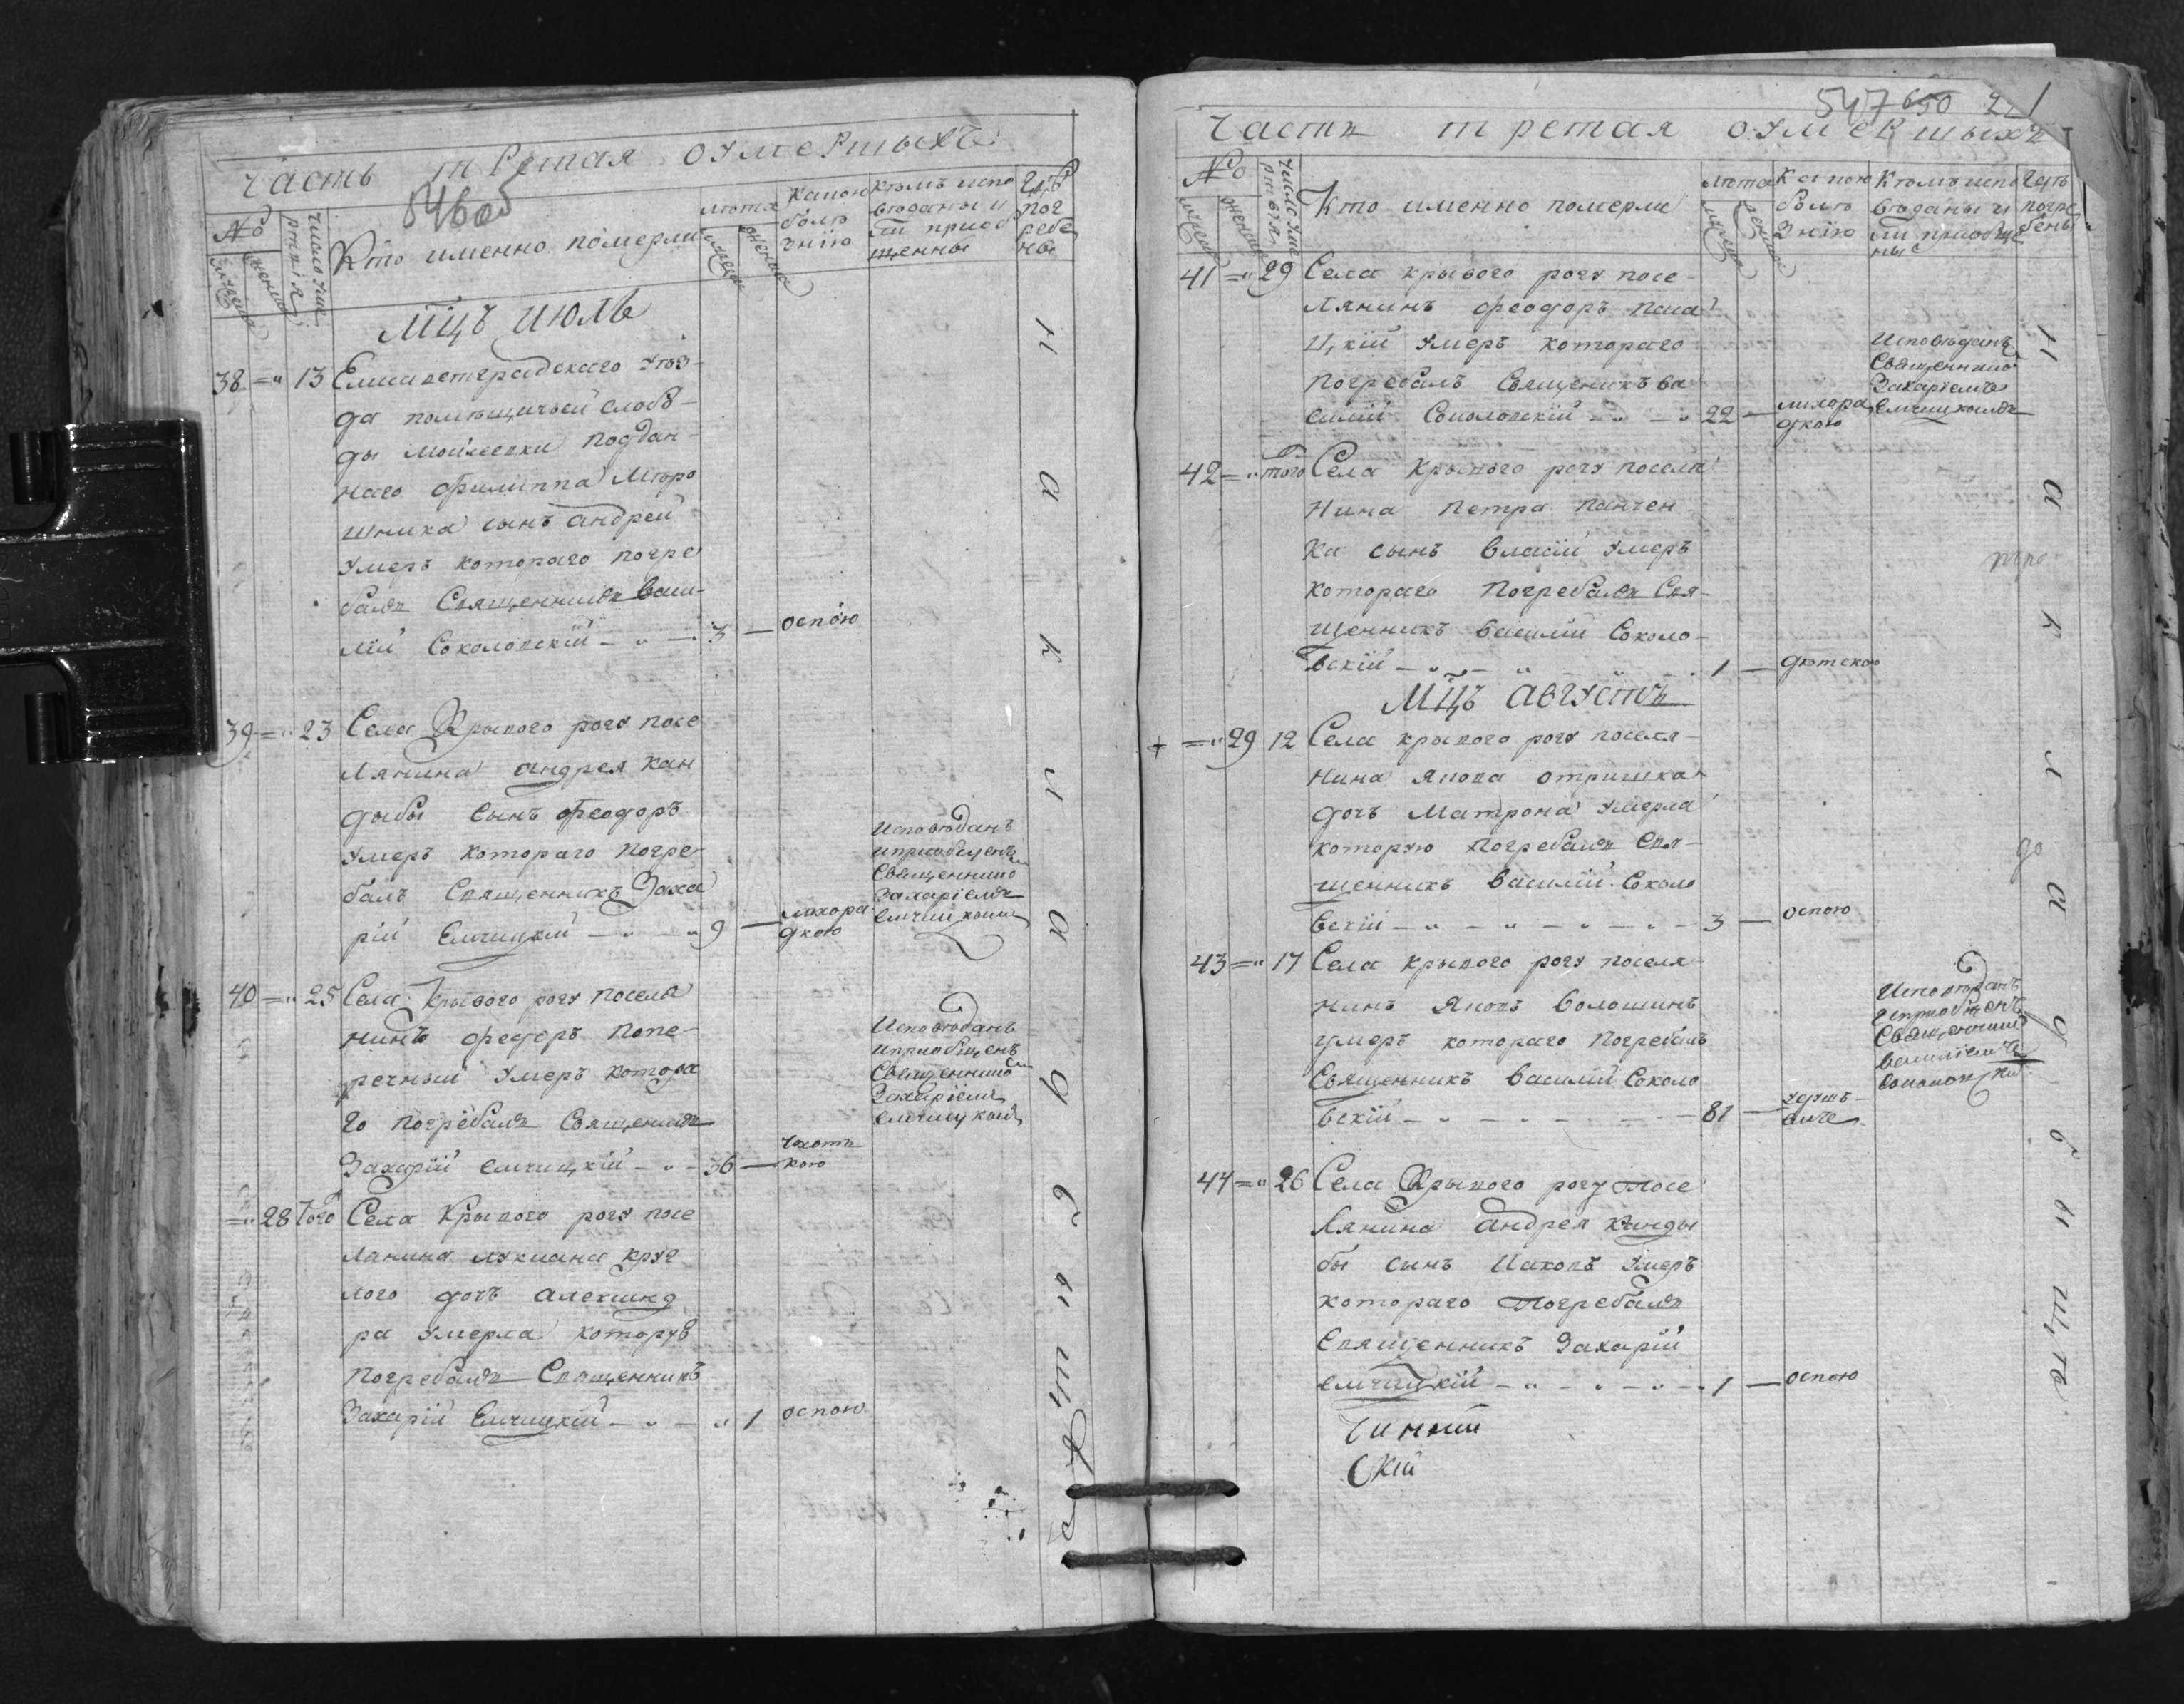 Часть третая оумершыхъ
546 об
№
мужеска
женска
Число умертвія
Кто именно померли
лѣта
мужеска
женска
Какою болѣзнію
Кѣмъ исповѣданы и ли приобщенны
Гдѣ погребены
Мцъ Июль
38 = " 13 Елисаветградскаго уѣз-
да помѣщичьей слобо-
ды Моисеевки поддан-
наго Филиппа Миро
шника сынъ андрей
умеръ котораго погре
балъ Священникъ Васи-
лій Соколовскій - " - 3 — оспою
39 = " 23 Села Крывого рогу посе
лянина андрея Кан
дыбы сынъ Феодоръ
умеръ котораго погре-
балъ Священникъ Заха
рій Емчицкій - " - " 9 — лихора
дкою
Исповѣданъ
и приобщенъ
Священникомъ
Захаріемъ
Емчицкимъ
40 = " 25 Села Крывого рогу поселя
нинъ федоръ попе-
речный умеръ котора
го погребалъ Священникъ
Захарій емчицкій - " - 36 — Чахот
кою
Исповѣданъ
и приобщенъ
Священникомъ
Захаріемъ
емчицкимъ
= " 28 Того Села Крывого рогу посе
лянина лукиана круг
лого дочъ александ
ра умерла которую
погребалъ Священникъ
Захарій Емчицкій - " - " 1 оспою
на кладбищѣ
Часть третая оумершыхъ
547 650 221
№
мужеска
женска
Число умертвія
Кто именно померли
лѣта
мужеска
женска
Какою болѣзнію
Кѣмъ исповѣданы и ли приобщенны
Гдѣ погребены
41 = " 29 Села крывого рогу посе-
лянинъ феодоръ
цкій умеръ котораго
погребалъ Священикъ ва
силій Соколовскій - " - " 22 — лихора
дкою
Исповѣданъ
Священником
Захаріемъ
Емчицкимъ
42 = " того Села Крывого рогу поселя
нина петра панчен
ка сынъ власій умеръ
котораго погребалъ Свя-
щенникъ василій Соколо-
вскій - " - " - 1 — дѣтскою
Мцъ Августъ
+ = " 29 12 Села крывого рогу поселя-
нина якова отришка
дочъ Матрона умерла
которую погребалъ Свя-
щенникъ василій Соколо
вскій - " - " - " - " - 3 — оспою
43 = " 17 Села крывого рогу поселя
нинъ яковъ волошинъ
умеръ котораго погребалъ
Священникъ василій Соколо
вскій - " - - - - 81 —
Исповѣданъ
и приобщенъ
Священникомъ
василіемъ
Соколовским
44 = " 26 Села Крывого рогу посе
лянина андрея канды
бы сынъ Иаковъ умеръ
котораго погребалъ
Священникъ Захарій
емчицкій - " - " - " - 1 — оспою
скій
на кладбищѣ